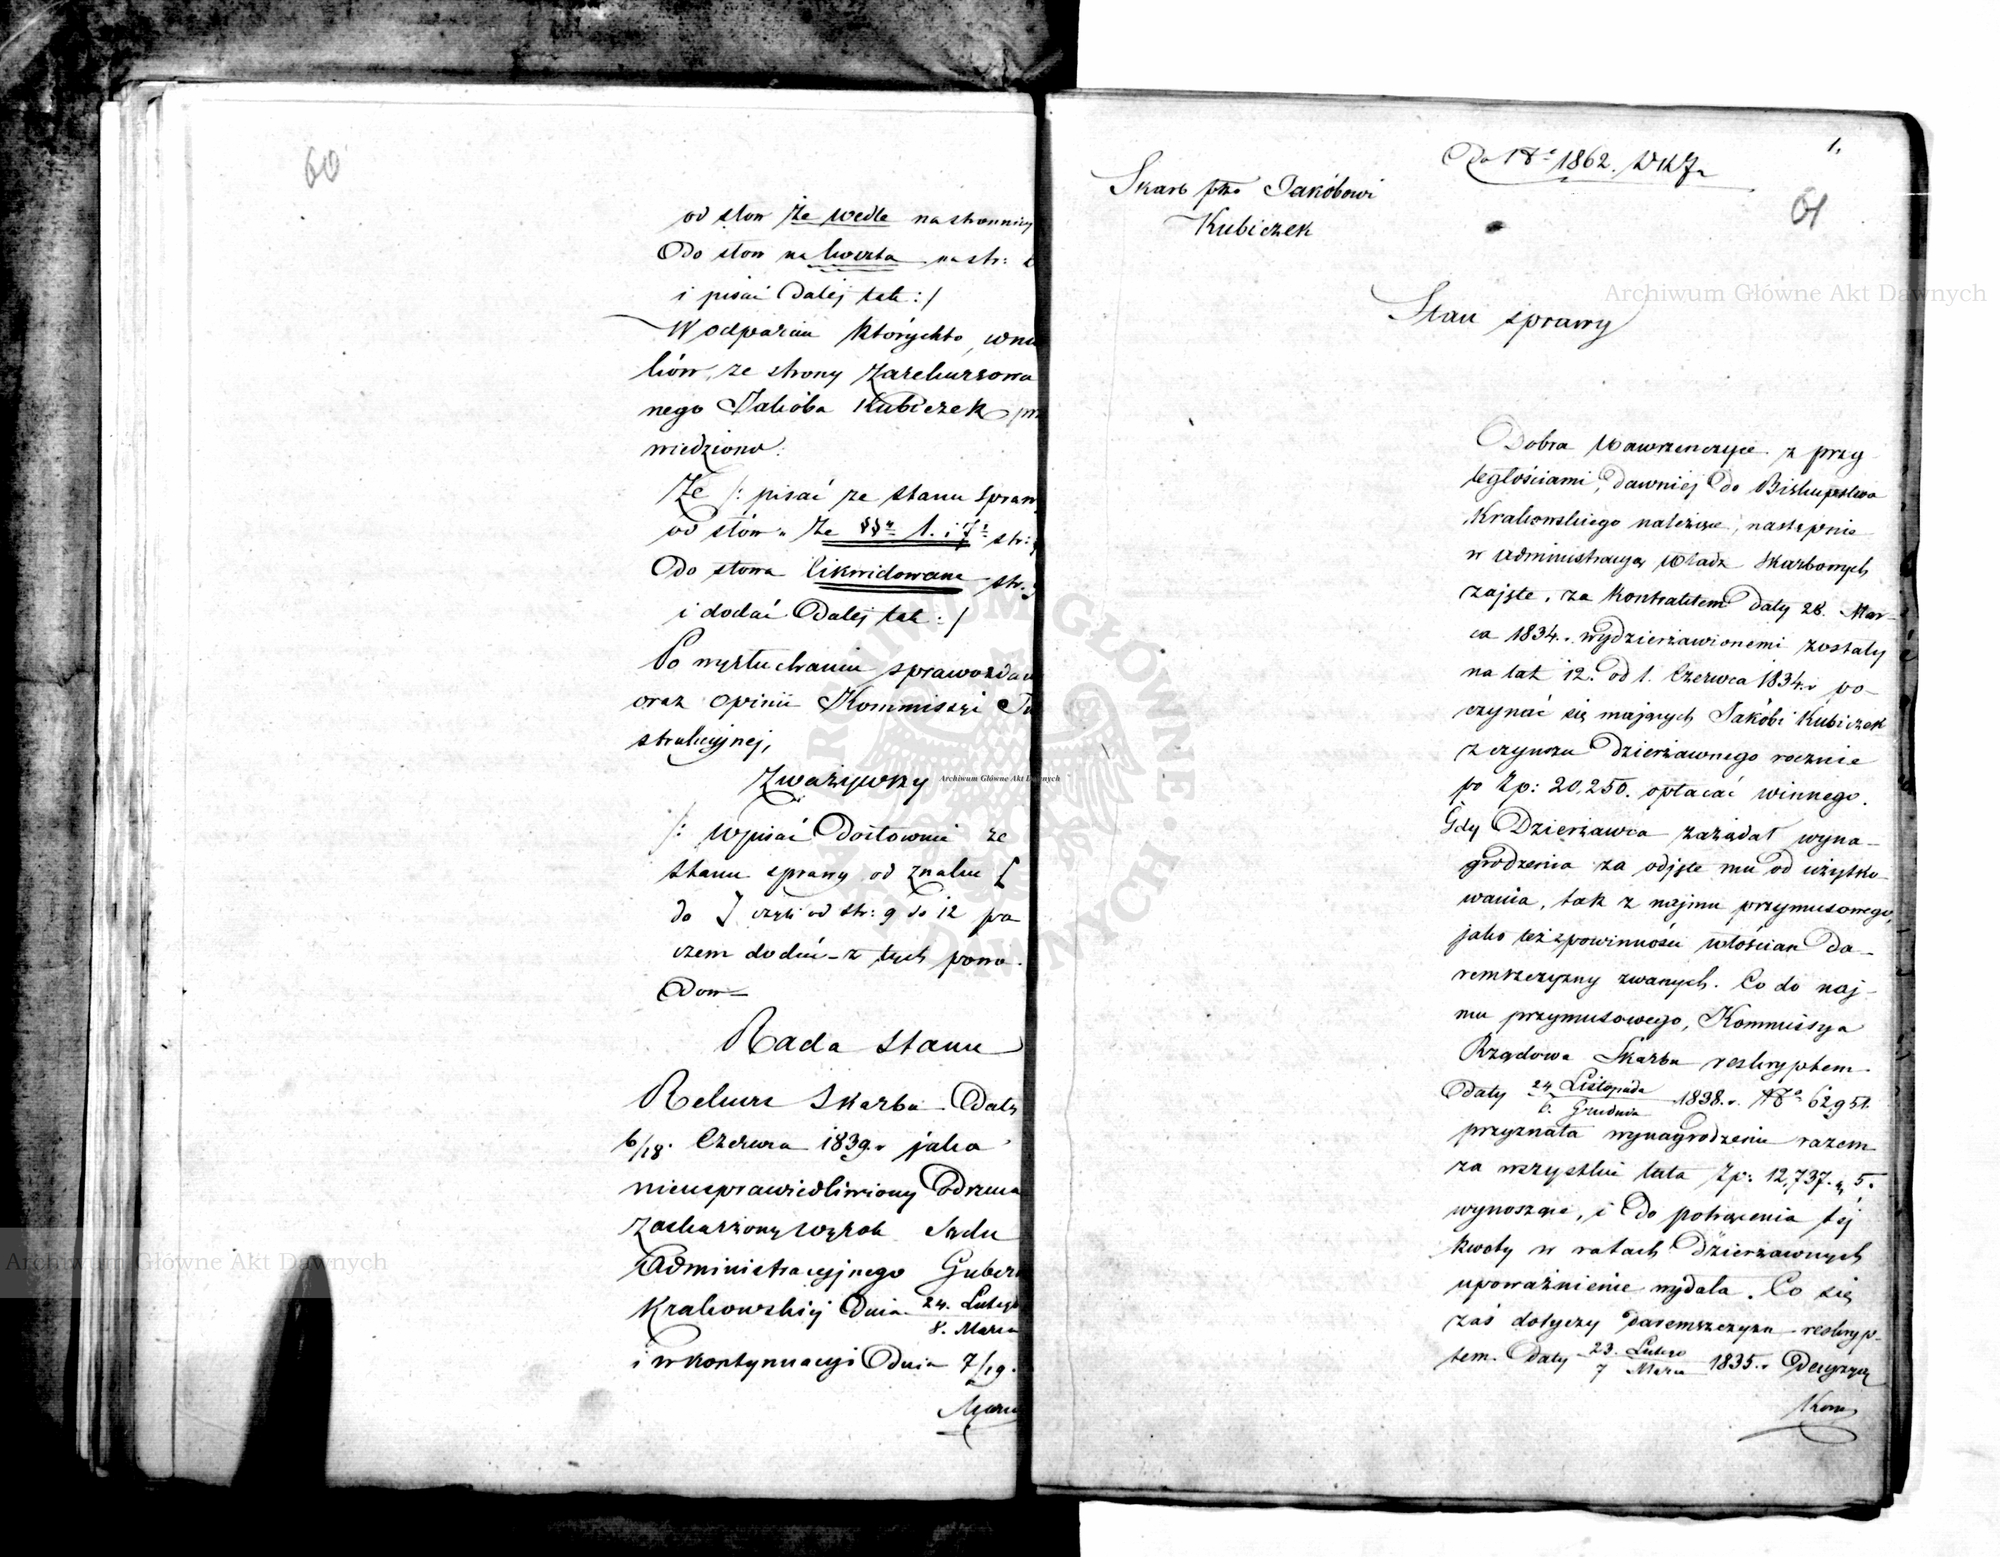 60
od słow że wedle na stronnicy
do słow na kwerta na str:
i pisać dalej tak :/
W odparciu którychto, wnio
sków, ze strony zarekursowa
nego Jakóba Kubiczek
wiedziono:
Że /: pisać ze stanu spraw
od słów „ Że §§ 1. i 7 str:
do słowa likwidowane str.
i dodać dalej tak :/
Po wysłuchaniu sprawozda
oraz opinii Kommissyi In
strukcyjnej,
Zważywszy
/: wpisać dosłownie ze
stanu sprawy od znaku [
do ] czyli od str: 9 do 12 po
czem dodać - z tych powo
dow -
Rada Stanu
Rekurs Skarbu daty
6/18. Czerwca 1839. r jako
nieusprawiedliwiony odrzuca
zaskarżony wyrok Sądu
Administracyjnego Gubern
Krakowskiej dnia 24. Lutego
8. Marca
i w kontynuacyi dnia 7/19.
Marca
Do № 1862.
1.
61
Skarb pko Jakóbowi
Kubiczek
Stan sprawy
Dobra Wawrzenczyce z przy-
ległościami, dawniej do Biskupstwa
Krakowskiego należące, następnie
w administracyą Władz Skarbowych
zajęte, za kontraktem daty 28. Mar-
ca 1834. r. wydzierżawionemi zostały
na lat 12. od 1. Czerwca 1834. r po-
czynać się mających Jakóbi Kubiczek
z czynszu dzierżawnego rocznie
po Zp: 20,250. opłacać winnego.
Gdy Dzierżawca zażądał wyna-
grodzenia za odjęte mu od użytko-
wania, tak z najmu przymusowego,
jako też z powinności włościan da-
remszczyzny zwanych. Co do naj-
mu przymusowego, Kommissya
Rządowa Skarbu reskryptem
daty 24 Listopada 1838. r. № 62,951.
6. Grudnia
przyznała wynagrodzenie razem
za wszystkie lata Zp: 12,737. g 5.
wynoszące, i do potrącenia tej
kwoty w ratach dzierżawnych
upoważnienie wydała. Co się
zaś dotyczy daremszczyzn reskryp-
tem daty 23. Lutego 1835. r. decyzyą
7 Marca
Kom
Archiwum Główne Akt Dawnych
Archiwum Główne Akt Dawnych
Archiwum Główne Akt Dawnych
ARCHIWUM GŁÓWNE AKT DAWNYCH